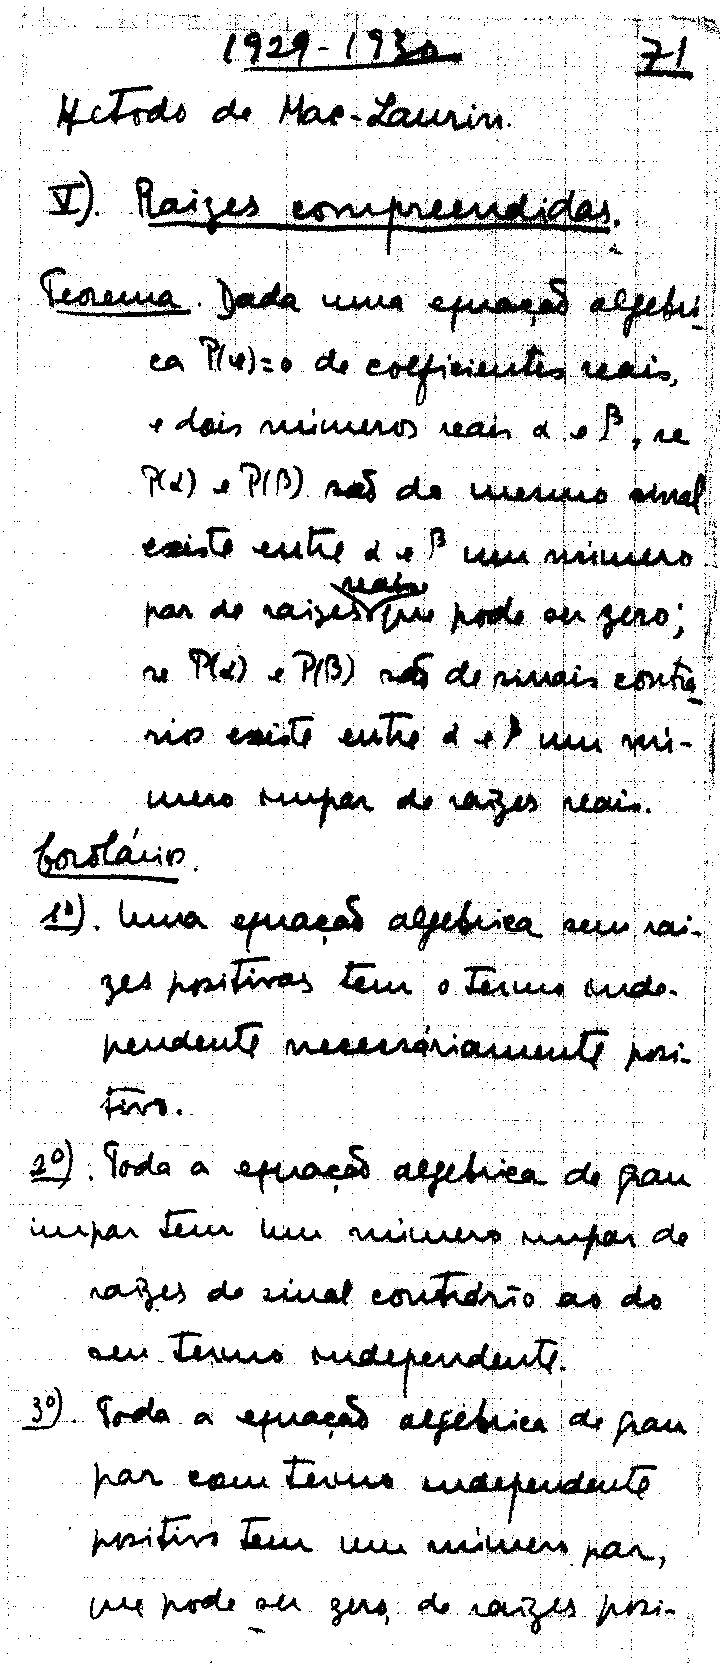 1929-1930 71
Metodo de Mac-Laurin.
V). Raizes compreendidas.
Teorema. Dada uma equação algebri-
ca P(x)=0 de coeficientes reais,
e dois números reais α e β, se
P(α) e P(β) são do mesmo sinal
existe entre α e β um número
par de raizes reais que pode ser zero;
se P(α) e P(β) são de sinais contrá-
rios existe entre α e β um nú-
mero impar de raizes reais.
Corolários.
1º). Uma equação algebrica sem rai-
zes positivas tem o termo inde-
pendente necessáriamente posi-
tivo.
2º). Toda a equação algebrica de grau
impar tem um número impar de
raizes de sinal contrário ao do
seu termo independente.
3º). Toda a equação algébrica de grau
par com termo independente
positivo tem um número par,
que pode ser zero, de raizes posi-